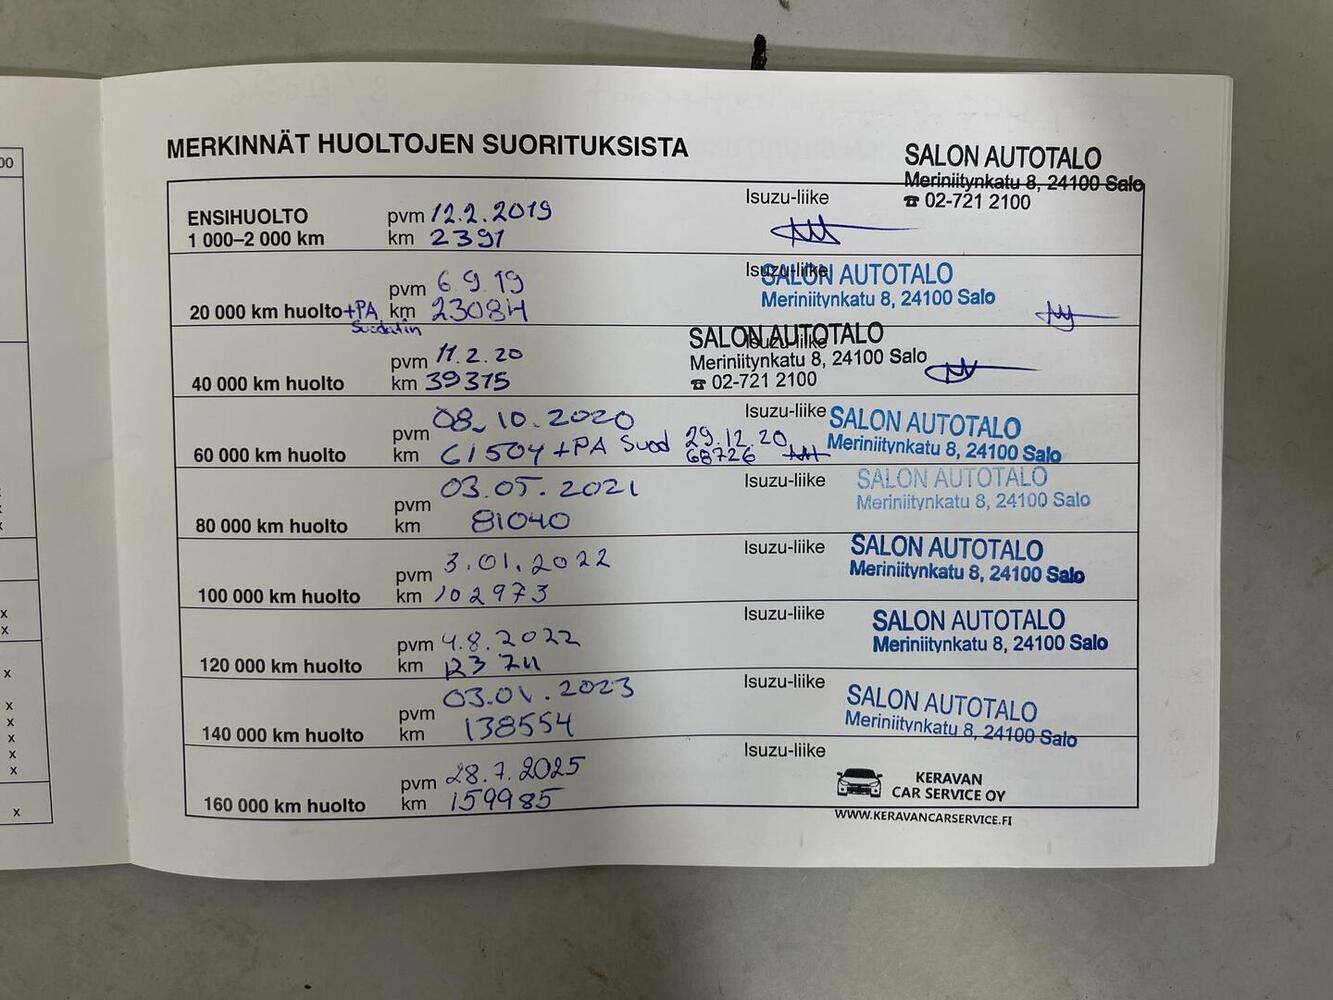 00
MERKINNÄT HUOLTOJEN SUORITUKSISTA
SALON AUTOTALO
Meriniitynkatu 8, 24100 Salo
☎ 02-721 2100
ENSIHUOLTO
1 000–2 000 km
pvm 12.2.2019
km 2391
Isuzu-liike
20 000 km huolto +PA Suodatin
pvm 6.9.19
km 23084
Isuzu-liike
SALON AUTOTALO
Meriniitynkatu 8, 24100 Salo
40 000 km huolto
pvm 11.2.20
km 39375
Isuzu-liike
SALON AUTOTALO
Meriniitynkatu 8, 24100 Salo
☎ 02-721 2100
60 000 km huolto
pvm 08.10.2020
km 61504 +PA Suod 29.12.20
68726
Isuzu-liike
SALON AUTOTALO
Meriniitynkatu 8, 24100 Salo
80 000 km huolto
pvm 03.05.2021
km 81040
Isuzu-liike
SALON AUTOTALO
Meriniitynkatu 8, 24100 Salo
100 000 km huolto
pvm 3.01.2022
km 102973
Isuzu-liike
SALON AUTOTALO
Meriniitynkatu 8, 24100 Salo
120 000 km huolto
pvm 4.8.2022
km
Isuzu-liike
SALON AUTOTALO
Meriniitynkatu 8, 24100 Salo
140 000 km huolto
pvm 03.01.2023
km 138554
Isuzu-liike
SALON AUTOTALO
Meriniitynkatu 8, 24100 Salo
160 000 km huolto
pvm 28.7.2025
km 159985
Isuzu-liike
KERAVAN
CAR SERVICE OY
WWW.KERAVANCARSERVICE.FI